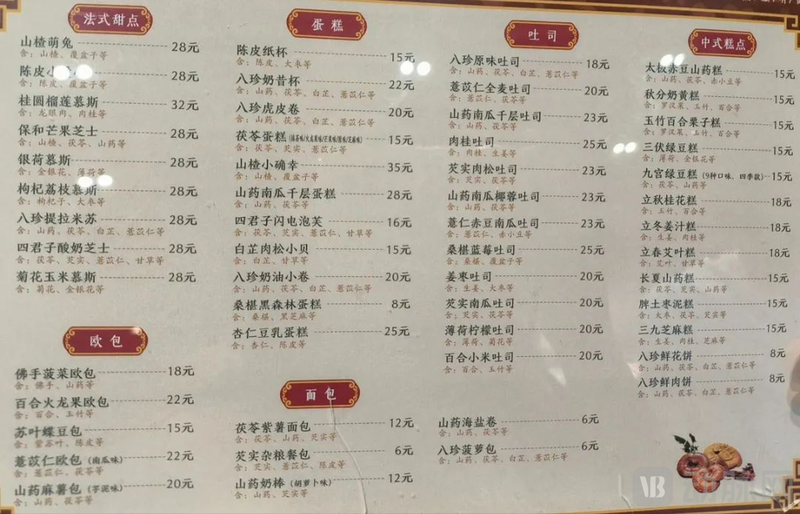 法式甜点
山楂萌兔 28元
含：山楂、覆盆子等
陈皮小 28元
含：陈皮、覆盆子等
桂圆榴莲慕斯 32元
含：龙眼肉、肉桂等
保和芒果芝士 28元
含：山楂、茯苓、山药等
银荷慕斯 28元
含：金银花、薄荷等
枸杞荔枝慕斯 28元
含：枸杞子、大枣等
八珍提拉米苏 28元
含：山药、茯苓、白芷、薏苡仁等
四君子酸奶芝士 28元
含：茯苓、芡实、薏苡仁、甘草等
菊花玉米慕斯 28元
含：菊花、金银花等
欧包
佛手菠菜欧包 18元
含：佛手、山药等
百合火龙果欧包 22元
含：百合、玉竹等
苏叶蝶豆包 15元
含：紫苏叶、陈皮等
薏苡仁欧包（南瓜味） 22元
含：薏苡仁、茯苓等
山药麻薯包（芋泥味） 20元
含：山药、茯苓等
蛋糕
陈皮纸杯 15元
含：陈皮、大枣等
八珍奶昔杯 22元
含：山药、茯苓、白芷、薏苡仁等
八珍虎皮卷 20元
含：山药、茯苓、白芷、薏苡仁等
茯苓蛋糕 15元
含：茯苓、芡实、薏苡仁等
山楂小确幸 35元
含：山楂、覆盆子等
山药南瓜千层蛋糕 28元
含：山药、茯苓等
四君子闪电泡芙 16元
含：茯苓、芡实、薏苡仁、甘草等
白芷肉松小贝 15元
含：白芷、薏苡仁、甘草等
八珍奶油小卷 20元
含：山药、茯苓、白芷、薏苡仁等
桑椹黑森林蛋糕 8元
含：桑椹、黑芝麻等
杏仁豆乳蛋糕 20元
含：杏仁、陈皮等
面包
茯苓紫薯面包 12元
含：茯苓、山药、芡实等
芡实杂粮餐包 6元
含：芡实、薏苡仁、陈皮等
山药奶棒（胡萝卜味） 12元
含：山药、芡实等
山药海盐卷 6元
含：山药、茯苓等
八珍菠萝包 6元
含：山药、茯苓、白芷、薏苡仁等
吐司
八珍原味吐司 18元
含：山药、茯苓、白芷、薏苡仁等
薏苡仁全麦吐司 20元
含：薏苡仁、茯苓等
山药南瓜千层吐司 23元
含：山药、茯苓等
肉桂吐司 25元
含：肉桂、生姜等
芡实肉松吐司 23元
含：芡实、茯苓等
山药南瓜椰蓉吐司 23元
含：山药、茯苓等
薏仁赤豆南瓜吐司 23元
含：薏苡仁、赤小豆等
桑椹蓝莓吐司 25元
含：桑椹、覆盆子等
姜枣吐司 20元
含：生姜、大枣等
芡实南瓜吐司 20元
含：芡实、茯苓等
薄荷柠檬吐司 20元
含：薄荷、菊花等
百合小米吐司 20元
含：百合、玉竹等
中式糕点
太极赤豆山药糕 15元
含：山药、茯苓、赤小豆等
秋分奶黄糕 15元
含：罗汉果、玉竹、百合等
玉竹百合果子糕 15元
含：罗汉果、玉竹、百合等
三伏绿豆糕 15元
含：薄荷、金银花等
九宫绿豆糕（9种口味、四季款） 15元
含：茯苓、山药等
立秋桂花糕 15元
含：玉竹、百合等
立冬姜汁糕 15元
含：生姜、肉桂等
立春艾叶糕 15元
含：艾叶、甘草等
长夏山药糕 15元
含：茯苓、芡实、山药等
脾土枣泥糕 15元
含：大枣、茯苓、芡实等
三九芝麻糕 15元
含：生姜、肉桂、芝麻等
八珍鲜花饼 8元
含：山药、茯苓、白芷、薏苡仁等
八珍鲜肉饼 8元
含：山药、茯苓、白芷、薏苡仁等